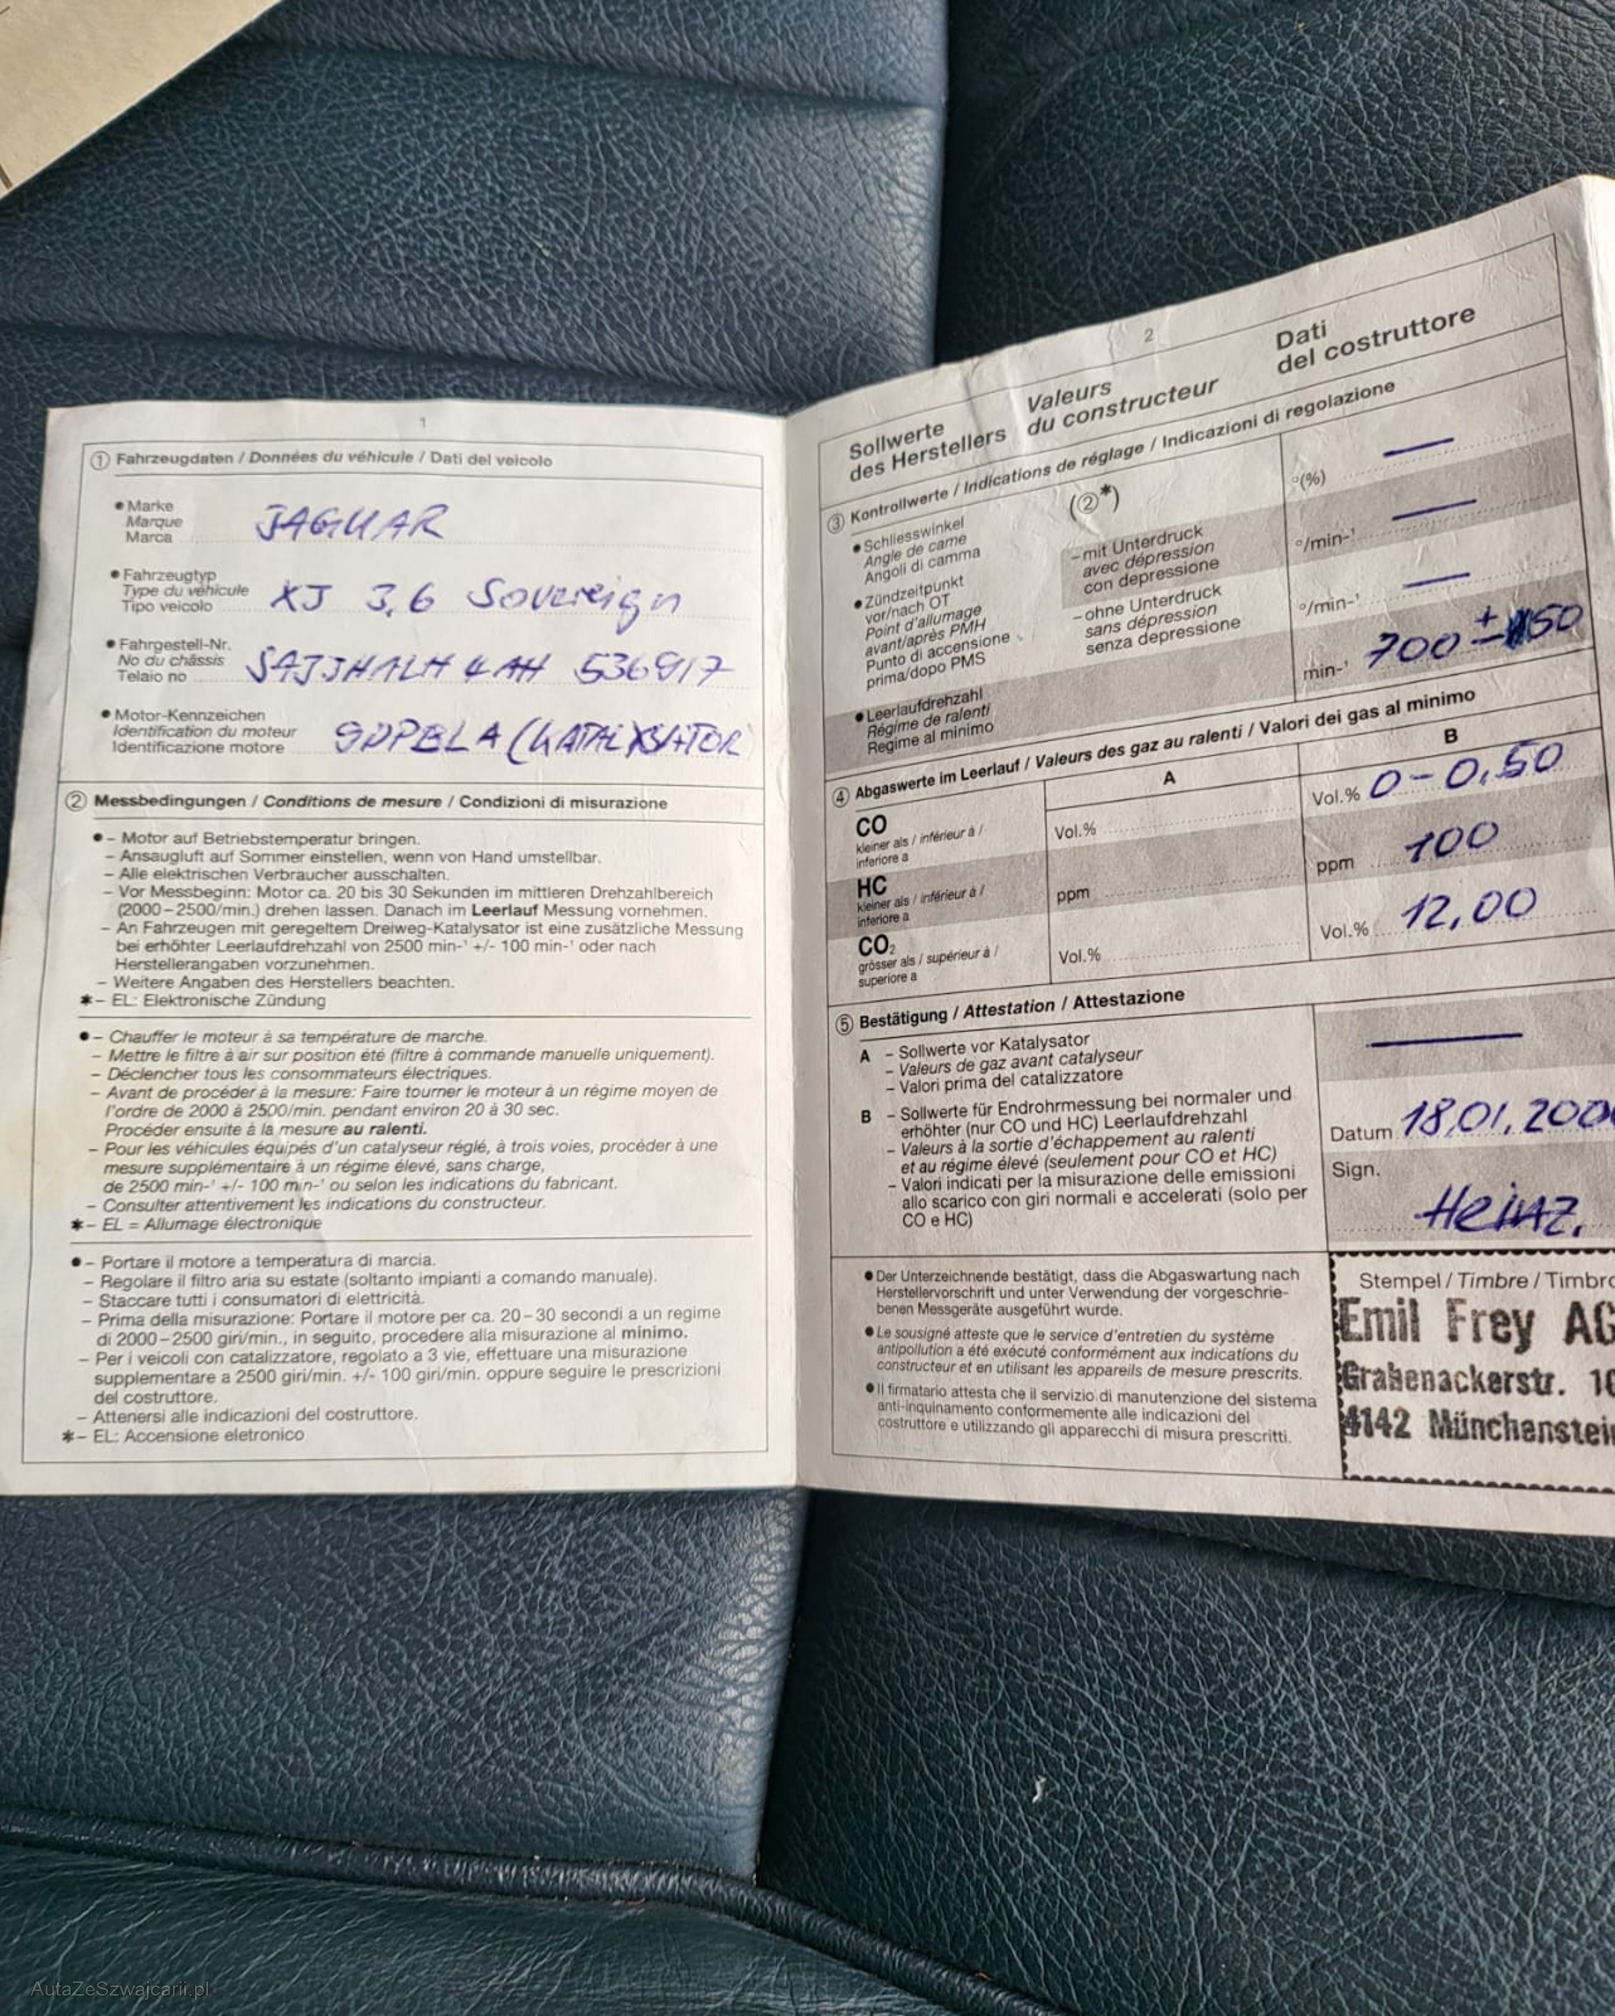 1
① Fahrzeugdaten / Données du véhicule / Dati del veicolo
● Marke JAGUAR
Marque
Marca
● Fahrzeugtyp
Type du véhicule XJ 3,6 Sovereign
Tipo veicolo
● Fahrgestell-Nr.
No du châssis SAJJHALH4AH 536917
Telaio no
● Motor-Kennzeichen
Identification du moteur 9DPBLA (KATALYSATOR)
Identificazione motore
② Messbedingungen / Conditions de mesure / Condizioni di misurazione
● – Motor auf Betriebstemperatur bringen.
– Ansaugluft auf Sommer einstellen, wenn von Hand umstellbar.
– Alle elektrischen Verbraucher ausschalten.
– Vor Messbeginn: Motor ca. 20 bis 30 Sekunden im mittleren Drehzahlbereich
(2000–2500/min.) drehen lassen. Danach im Leerlauf Messung vornehmen.
– An Fahrzeugen mit geregeltem Dreiweg-Katalysator ist eine zusätzliche Messung
bei erhöhter Leerlaufdrehzahl von 2500 min-¹ +/- 100 min-¹ oder nach
Herstellerangaben vorzunehmen.
– Weitere Angaben des Herstellers beachten.
✱– EL: Elektronische Zündung
● – Chauffer le moteur à sa température de marche.
– Mettre le filtre à air sur position été (filtre à commande manuelle uniquement).
– Déclencher tous les consommateurs électriques.
– Avant de procéder à la mesure: Faire tourner le moteur à un régime moyen de
l'ordre de 2000 à 2500/min. pendant environ 20 à 30 sec.
Procéder ensuite à la mesure au ralenti.
– Pour les véhicules équipés d'un catalyseur réglé, à trois voies, procéder à une
mesure supplémentaire à un régime élevé, sans charge,
de 2500 min-¹ +/- 100 min-¹ ou selon les indications du fabricant.
– Consulter attentivement les indications du constructeur.
✱– EL = Allumage électronique
● – Portare il motore a temperatura di marcia.
– Regolare il filtro aria su estate (soltanto impianti a comando manuale).
– Staccare tutti i consumatori di elettricità.
– Prima della misurazione: Portare il motore per ca. 20–30 secondi a un regime
di 2000–2500 giri/min., in seguito, procedere alla misurazione al minimo.
– Per i veicoli con catalizzatore, regolato a 3 vie, effettuare una misurazione
supplementare a 2500 giri/min. +/- 100 giri/min. oppure seguire le prescrizioni
del costruttore.
– Attenersi alle indicazioni del costruttore.
✱– EL: Accensione eletronico
2
Sollwerte Valeurs Dati
des Herstellers du constructeur del costruttore
③ Kontrollwerte / Indications de réglage / Indicazioni di regolazione
● Schliesswinkel (②*) °(%) —
Angle de came
Angoli di camma
● Zündzeitpunkt – mit Unterdruck °/min-¹ —
vor/nach OT avec dépression
Point d'allumage con depressione
avant/après PMH – ohne Unterdruck °/min-¹ —
Punto di accensione sans dépression
prima/dopo PMS senza depressione
● Leerlaufdrehzahl min-¹ 700 ± 50
Régime de ralenti
Regime al minimo
④ Abgaswerte im Leerlauf / Valeurs des gaz au ralenti / Valori dei gas al minimo
A B
CO Vol.% Vol.% 0–0,50
kleiner als / inférieur à /
inferiore a
HC ppm ppm 100
kleiner als / inférieur à /
inferiore a
CO₂ Vol.% Vol.% 12,00
grösser als / supérieur à /
superiore a
⑤ Bestätigung / Attestation / Attestazione
A – Sollwerte vor Katalysator —
– Valeurs de gaz avant catalyseur
– Valori prima del catalizzatore
B – Sollwerte für Endrohrmessung bei normaler und
erhöhter (nur CO und HC) Leerlaufdrehzahl
– Valeurs à la sortie d'échappement au ralenti
et au régime élevé (seulement pour CO et HC)
– Valori indicati per la misurazione delle emissioni
allo scarico con giri normali e accelerati (solo per
CO e HC)
Datum 18,01,200
Sign.
Heinz.
● Der Unterzeichnende bestätigt, dass die Abgaswartung nach
Herstellervorschrift und unter Verwendung der vorgeschrie-
benen Messgeräte ausgeführt wurde.
● Le sousigné atteste que le service d'entretien du système
antipollution a été exécuté conformément aux indications du
constructeur et en utilisant les appareils de mesure prescrits.
● Il firmatario attesta che il servizio di manutenzione del sistema
anti-inquinamento conformemente alle indicazioni del
costruttore e utilizzando gli apparecchi di misura prescritti.
Stempel / Timbre / Timbro
Emil Frey AG
Grabenackerstr. 10
4142 Münchenstein
AutaZeSzwajcarii.pl